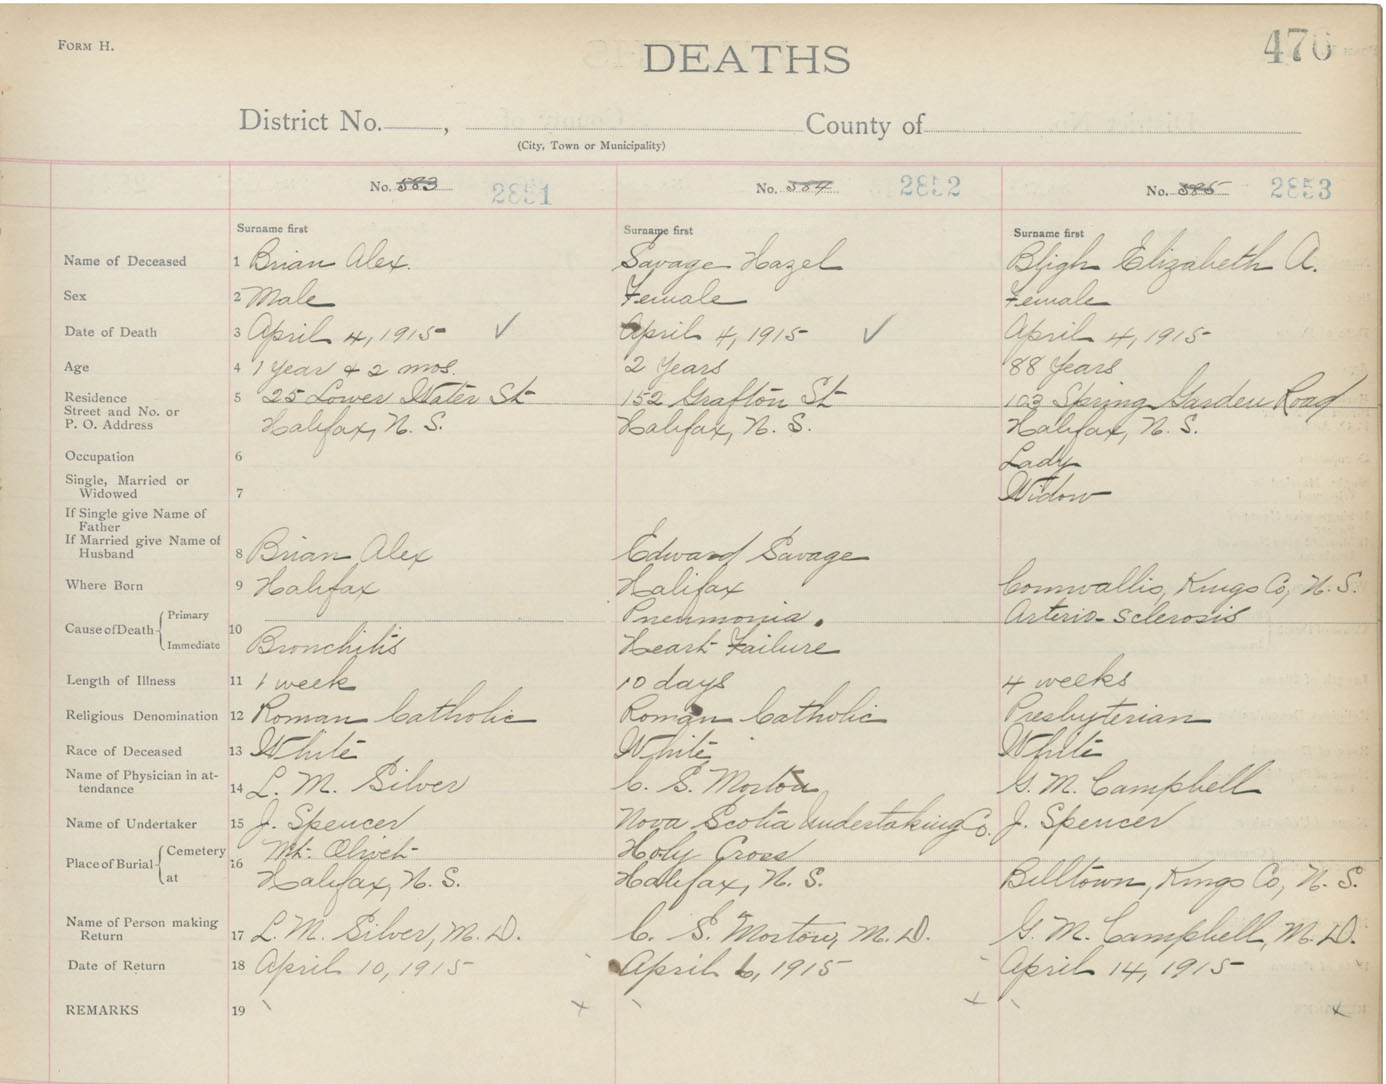 FORM H.
DEATHS
470
District No. , County of
(City, Town or Municipality)
No. 583 2851 No. 584 2852 No. 585 2853
Surname first Surname first Surname first
Name of Deceased 1 Brian Alex. Savage Hazel Bligh Elizabeth A.
Sex 2 Male Female Female
Date of Death 3 April 4, 1915 ✓ April 4, 1915 ✓ April 4, 1915
Age 4 1 year & 2 mos. 2 Years 88 Years
Residence 5 25 Lower Water St 152 Grafton St 103 Spring Garden Road
Street and No. or
P. O. Address Halifax, N. S. Halifax, N. S. Halifax, N. S.
Occupation 6 Lady
Single, Married or
Widowed 7 Widow
If Single give Name of
Father
If Married give Name of
Husband 8 Brian Alex Edward Savage
Where Born 9 Halifax Halifax Cornwallis, Kings Co, N. S.
Cause of Death Primary 10 Pneumonia. Arterio-sclerosis
Immediate Bronchitis Heart Failure
Length of Illness 11 1 week 10 days 4 weeks
Religious Denomination 12 Roman Catholic Roman Catholic Presbyterian
Race of Deceased 13 White White White
Name of Physician in at-
tendance 14 L. M. Silver C. S. Morton G. M. Campbell
Name of Undertaker 15 J. Spencer Nova Scotia Undertaking Co. J. Spencer
Place of Burial Cemetery 16 Mt. Olivet Holy Cross
at Halifax, N. S. Halifax, N. S. Billtown, Kings Co, N. S.
Name of Person making
Return 17 L. M. Silver, M. D. C. S. Morton, M. D. G. M. Campbell, M. D.
Date of Return 18 April 10, 1915 April 6, 1915 April 14, 1915
REMARKS 19